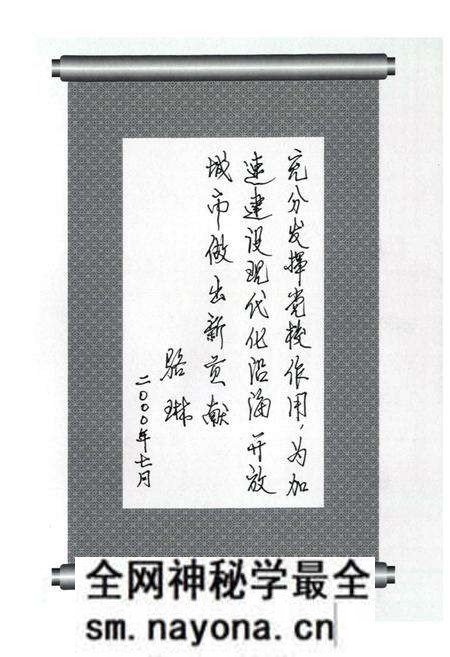 充分发挥党校作用,为加
速建设现代化沿海开放
城市做出新贡献
骆琳
二〇〇〇年七月
全网神秘学最全
sm.nayona.cn